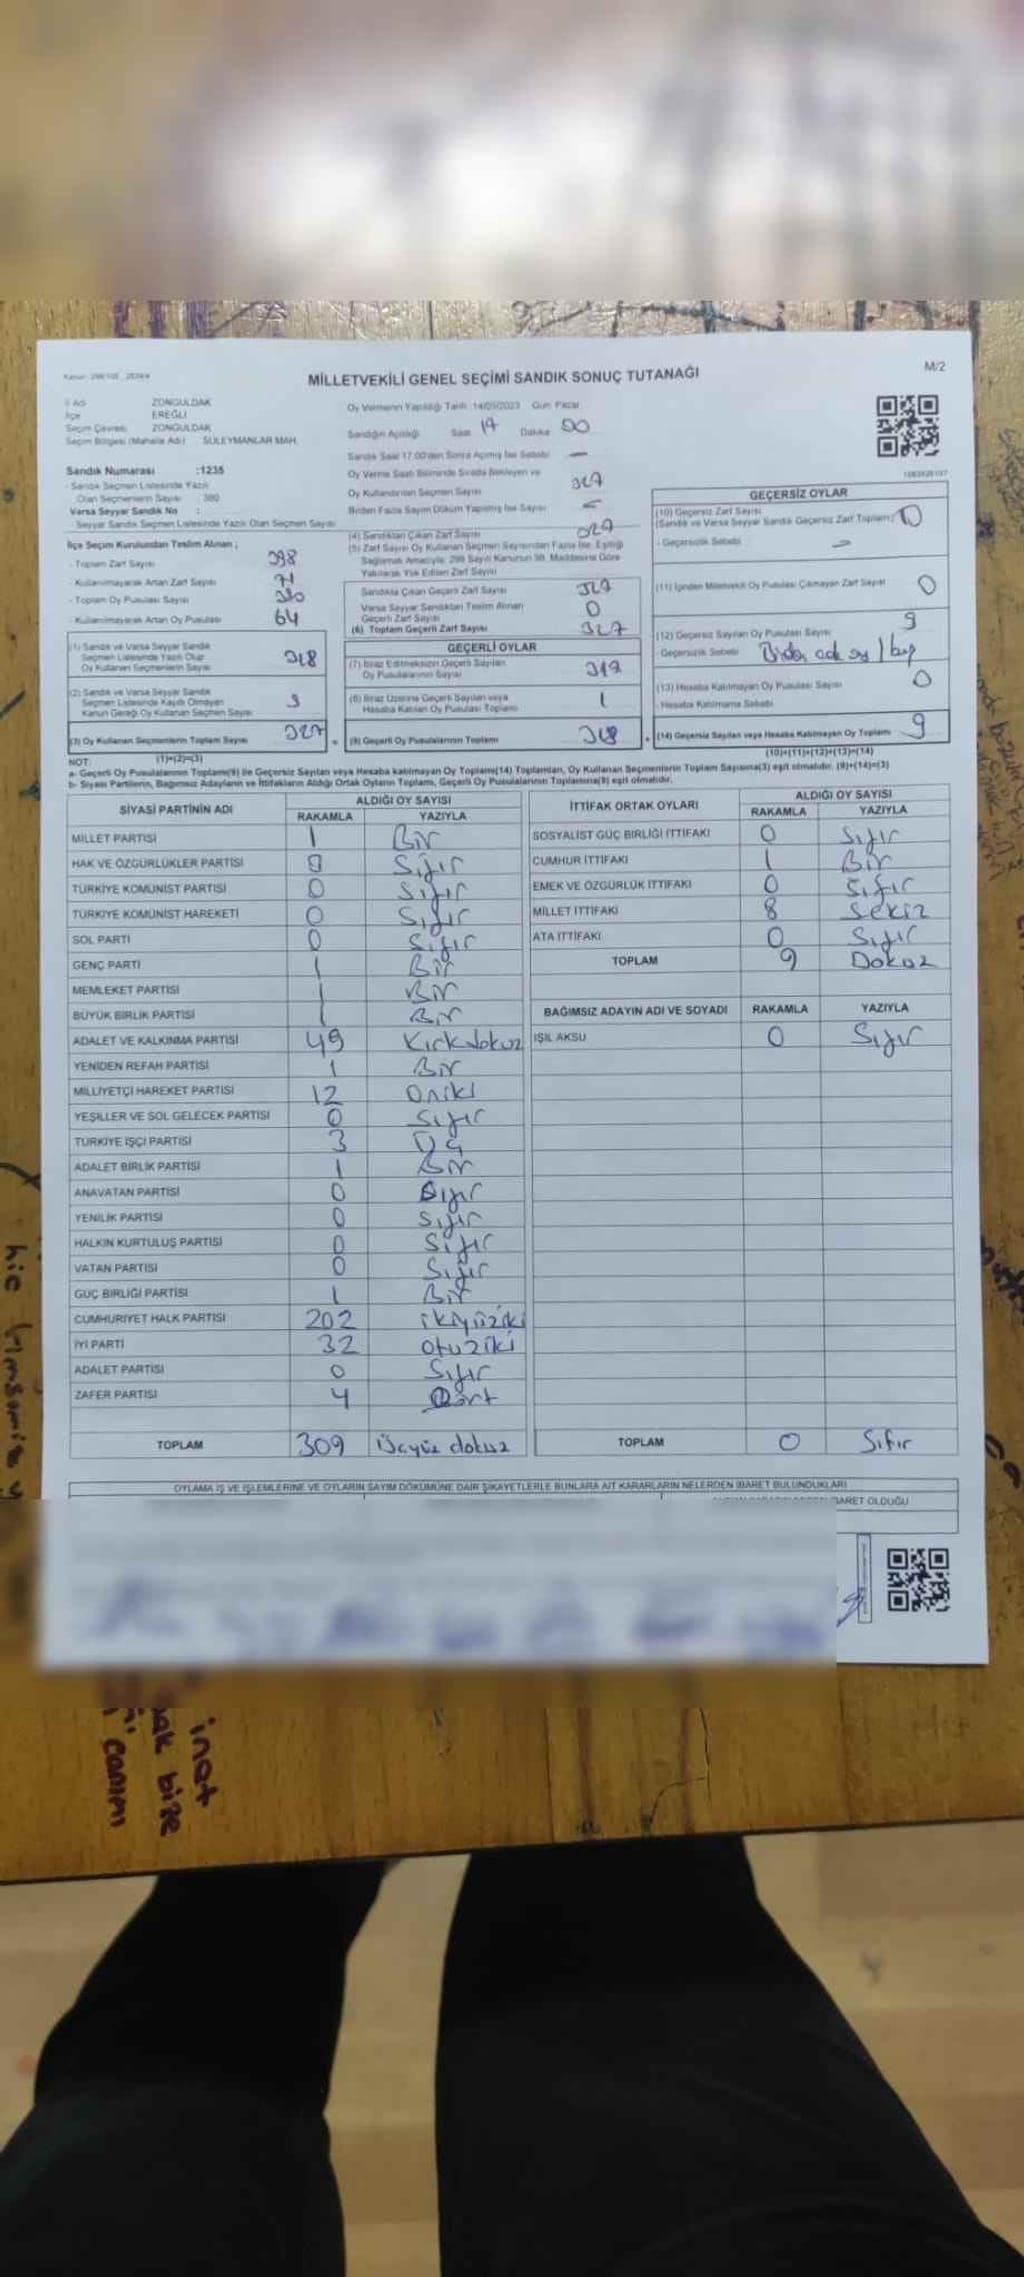 Kanun: 298/105 , 2839/4
MİLLETVEKİLİ GENEL SEÇİMİ SANDIK SONUÇ TUTANAĞI
M/2
İl Adı ZONGULDAK
İlçe EREĞLİ
Seçim Çevresi ZONGULDAK
Seçim Bölgesi (Mahalle Adı) SÜLEYMANLAR MAH.
Oy Vermenin Yapıldığı Tarih :14/05/2023 Gün: Pazar
Sandığın Açılışı Saat 17 Dakika 00
Sandık Saat 17:00'den Sonra Açılmış İse Sebebi -
Oy Verme Saati Bitiminde Sırada Bekleyen ve
Oy Kullandırılan Seçmen Sayısı 327
Birden Fazla Sayım Döküm Yapılmış İse Sayısı
Sandık Numarası :1235
- Sandık Seçmen Listesinde Yazılı
Olan Seçmenlerin Sayısı : 380
Varsa Seyyar Sandık No :
- Seyyar Sandık Seçmen Listesinde Yazılı Olan Seçmen Sayısı
İlçe Seçim Kurulundan Teslim Alınan ;
- Toplam Zarf Sayısı 398
- Kullanılmayarak Artan Zarf Sayısı 71
- Toplam Oy Pusulası Sayısı
- Kullanılmayarak Artan Oy Pusulası 64
(1) Sandık ve Varsa Seyyar Sandık
Seçmen Listesinde Yazılı Olup
Oy Kullanan Seçmenlerin Sayısı
(2) Sandık ve Varsa Seyyar Sandık
Seçmen Listesinde Kayıtlı Olmayan
Kanun Gereği Oy Kullanan Seçmen Sayısı 3
(3) Oy Kullanan Seçmenlerin Toplam Sayısı 327
(1)+(2)=(3)
(4) Sandıktan Çıkan Zarf Sayısı 327
(5) Zarf Sayısı Oy Kullanan Seçmen Sayısından Fazla İse, Eşitliği
Sağlamak Amacıyla; 298 Sayılı Kanunun 98. Maddesine Göre
Yakılarak Yok Edilen Zarf Sayısı
Sandıkta Çıkan Geçerli Zarf Sayısı 327
Varsa Seyyar Sandıktan Teslim Alınan
Geçerli Zarf Sayısı 0
(6) Toplam Geçerli Zarf Sayısı 327
GEÇERLİ OYLAR
(7) İtiraz Edilmeksizin Geçerli Sayılan
Oy Pusulalarının Sayısı 317
(8) İtiraz Üzerine Geçerli Sayılan veya
Hesaba Katılan Oy Pusulası Toplamı 1
(9) Geçerli Oy Pusulalarının Toplamı 318
GEÇERSİZ OYLAR
(10) Geçersiz Zarf Sayısı
(Sandık ve Varsa Seyyar Sandık Geçersiz Zarf Toplamı) 0
- Geçersizlik Sebebi
(11) İçinden Milletvekili Oy Pusulası Çıkmayan Zarf Sayısı 0
(12) Geçersiz Sayılan Oy Pusulası Sayısı 9
- Geçersizlik Sebebi
(13) Hesaba Katılmayan Oy Pusulası Sayısı 0
- Hesaba Katılmama Sebebi
(14) Geçersiz Sayılan veya Hesaba Katılmayan Oy Toplamı 9
(10)+(11)+(12)+(13)=(14)
NOT:
a- Geçerli Oy Pusulalarının Toplamı(9) ile Geçersiz Sayılan veya Hesaba katılmayan Oy Toplamı(14) Toplamları, Oy Kullanan Seçmenlerin Toplam Sayısına(3) eşit olmalıdır. (9)+(14)=(3)
b- Siyasi Partilerin, Bağımsız Adayların ve İttifakların Aldığı Ortak Oyların Toplamı, Geçerli Oy Pusulalarının Toplamına(9) eşit olmalıdır.
SİYASİ PARTİNİN ADI ALDIĞI OY SAYISI
RAKAMLA YAZIYLA
MİLLET PARTİSİ 1 Bir
HAK VE ÖZGÜRLÜKLER PARTİSİ 0 Sıfır
TÜRKİYE KOMÜNİST PARTİSİ 0 Sıfır
TÜRKİYE KOMÜNİST HAREKETİ 0 Sıfır
SOL PARTİ 0 Sıfır
GENÇ PARTİ 1 Bir
MEMLEKET PARTİSİ 1 Bir
BÜYÜK BİRLİK PARTİSİ 1 Bir
ADALET VE KALKINMA PARTİSİ 49 Kırkdokuz
YENİDEN REFAH PARTİSİ 1 Bir
MİLLİYETÇİ HAREKET PARTİSİ 12 Oniki
YEŞİLLER VE SOL GELECEK PARTİSİ 0 Sıfır
TÜRKİYE İŞÇİ PARTİSİ 3 Üç
ADALET BİRLİK PARTİSİ 1 Bir
ANAVATAN PARTİSİ 0 Sıfır
YENİLİK PARTİSİ 0 Sıfır
HALKIN KURTULUŞ PARTİSİ 0 Sıfır
VATAN PARTİSİ 0 Sıfır
GÜÇ BİRLİĞİ PARTİSİ 1 Bir
CUMHURİYET HALK PARTİSİ 202 ikiyüziki
İYİ PARTİ 32 otuziki
ADALET PARTİSİ 0 Sıfır
ZAFER PARTİSİ 4 Dört
TOPLAM 309 Üçyüz dokuz
İTTİFAK ORTAK OYLARI ALDIĞI OY SAYISI
RAKAMLA YAZIYLA
SOSYALİST GÜÇ BİRLİĞİ İTTİFAKI 0 Sıfır
CUMHUR İTTİFAKI 1 Bir
EMEK VE ÖZGÜRLÜK İTTİFAKI 0 Sıfır
MİLLET İTTİFAKI 8 Sekiz
ATA İTTİFAKI 0 Sıfır
TOPLAM 9 Dokuz
BAĞIMSIZ ADAYIN ADI VE SOYADI RAKAMLA YAZIYLA
IŞIL AKSU 0 Sıfır
TOPLAM 0 Sıfır
OYLAMA İŞ VE İŞLEMLERİNE VE OYLARIN SAYIM DÖKÜMÜNE DAİR ŞİKAYETLERLE BUNLARA AİT KARARLARIN NELERDEN İBARET BULUNDUKLARI
İBARET OLDUĞU
hiç kimsenin
inat
bize
canım